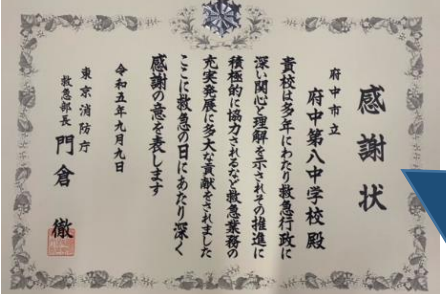 感謝状
府中市立
府中第八中学校殿
貴校は多年にわたり救急行政に
深い関心と理解を示されその推進に
積極的に協力されるなど救急業務の
充実発展に多大な貢献をされました
ここに救急の日にあたり深く
感謝の意を表します
令和五年九月九日
東京消防庁
救急部長 門倉 徹